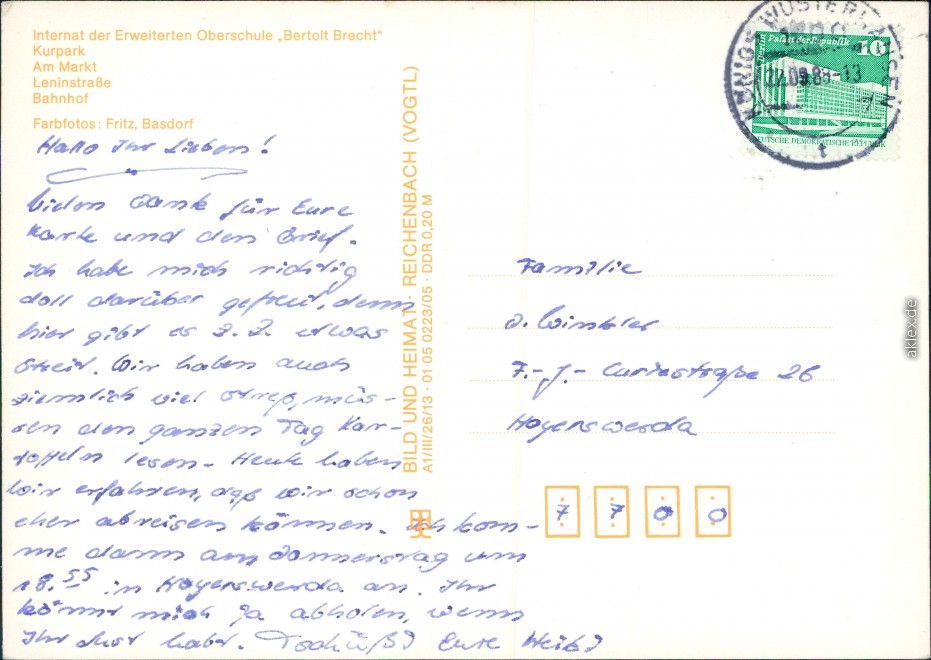 Internat der Erweiterten Oberschule „Bertolt Brecht"
Kurpark
Am Markt
Leninstraße
Bahnhof
Farbfotos: Fritz, Basdorf
Hallo Ihr Lieben!
Vielen Dank für Eure
Karte und den Brief.
Ich habe mich richtig
doll darüber gefreut, denn
hier gibt es z. Z. etwas
Streit. Wir haben auch
ziemlich viel Streß, müs-
sen den ganzen Tag Kar-
toffeln lesen. Heute haben
wir erfahren, daß wir schon
eher abreisen können. Ich kom-
me dann am Donnerstag um
18.55 in Hoyerswerda an. Ihr
könnt mich ja abholen, wenn
Ihr Lust habt. Tschüß! Eure
BILD UND HEIMAT · REICHENBACH (VOGTL)
A1/III/26/13 · 01 05 0223/05 · DDR 0,20 M
KÖNIGS WUSTERHAUSEN
22.09.83-13
Berlin Palast der Republik 10
DEUTSCHE DEMOKRATISCHE REPUBLIK
Familie
Winkler
F.-J.-Curiestraße 26
Hoyerswerda
7 7 0 0
aklex.de